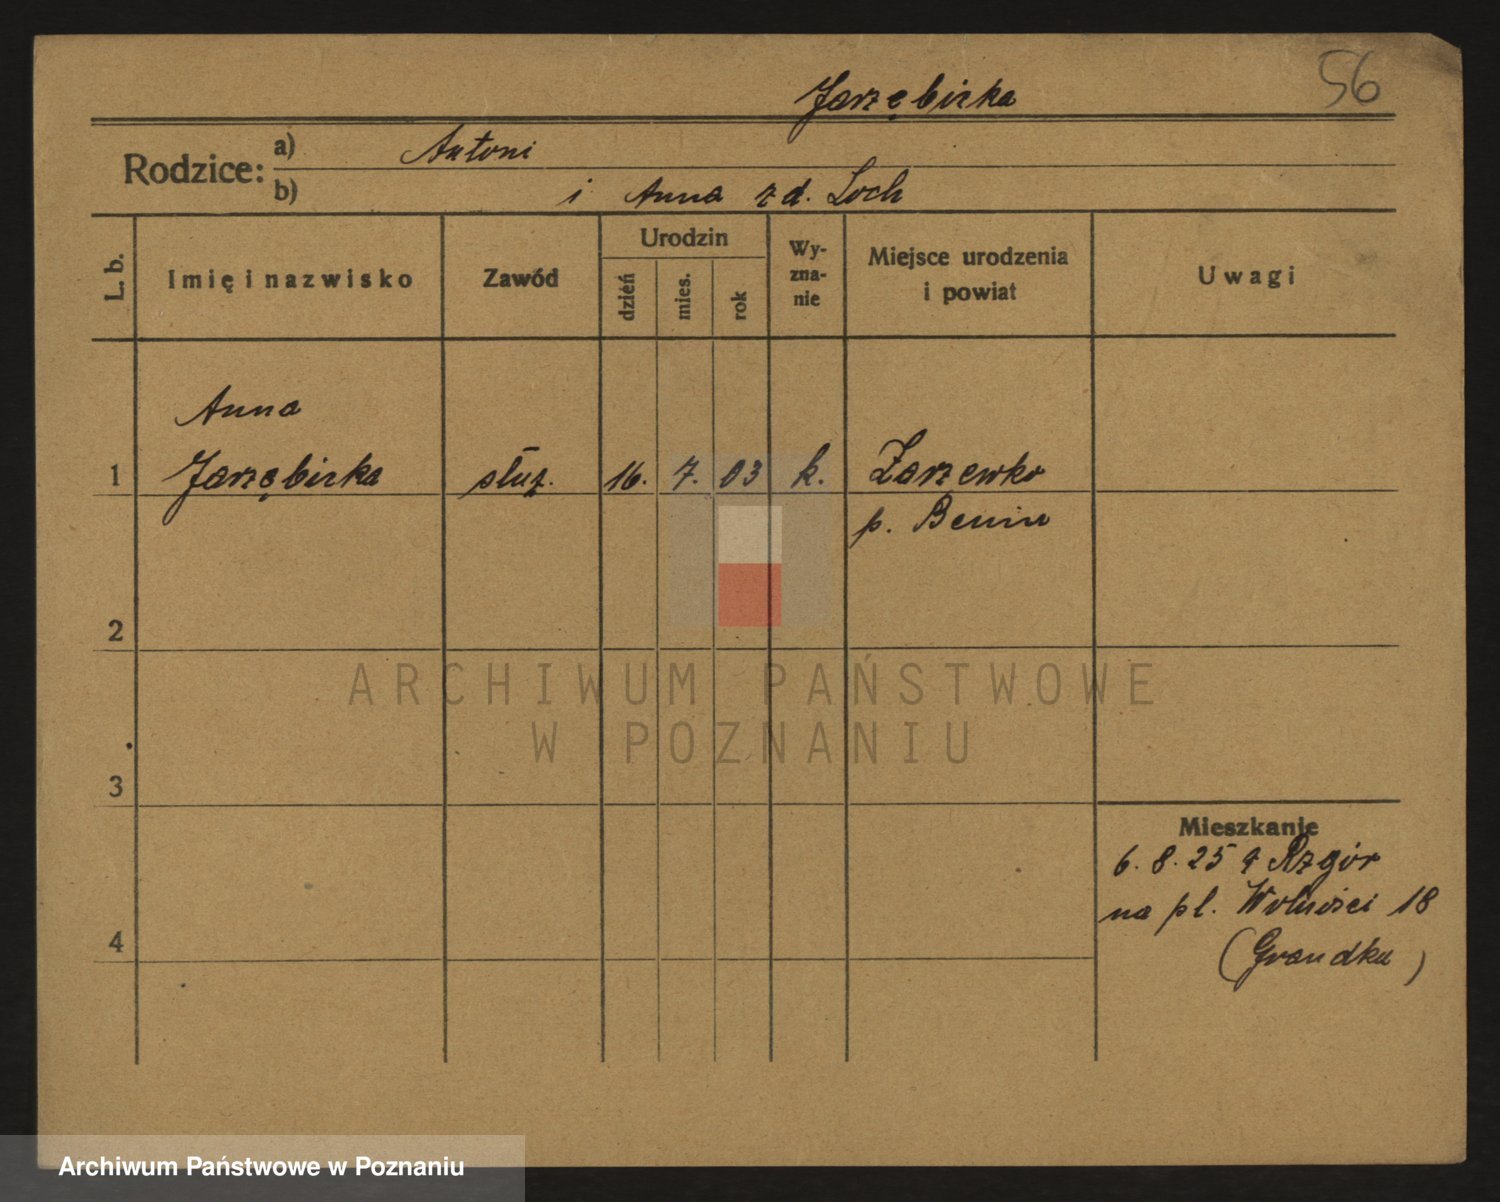 56
Jarzębska
Rodzice: a) Antoni
b) i Anna z d. Loch
L. b.
Imię i nazwisko
Zawód
Urodzin
dzień
mies.
rok
Wy-
zna-
nie
Miejsce urodzenia
i powiat
Uwagi
Anna
1 Jarzębska służ. 16. 7. 03 k.
p.
2
ARCHIWUM PAŃSTWOWE
W POZNANIU
3
Mieszkanie
6. 8. 25 z
na pl. Wolności 18
4
Archiwum Państwowe w Poznaniu